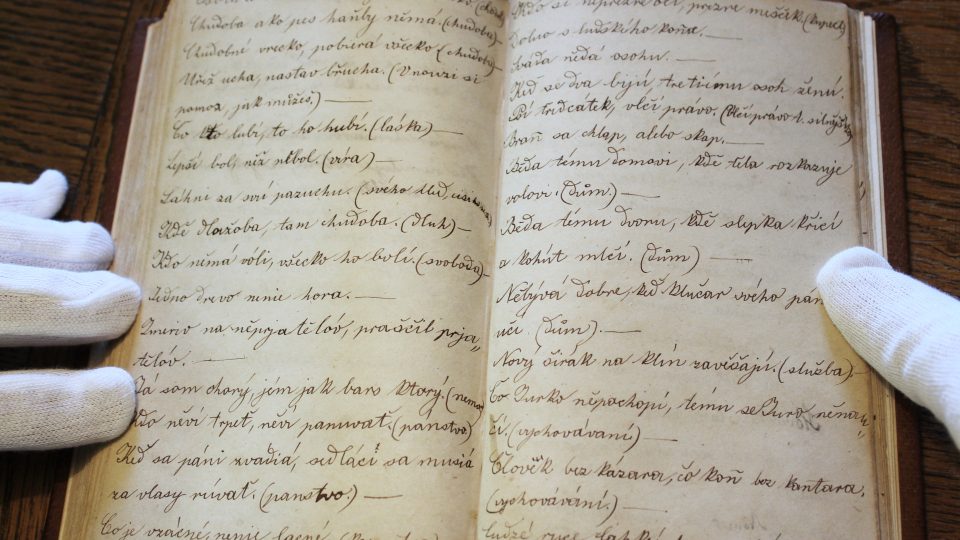 Chudoba ako pes hanby němá. (chudoba)—
Chudobné vrecko, pobierá všecko (chudoba)—
Uřež ucha, nastav břucha. (V núzi si
pomoz, jak můžeš.)—
Čo kto lubí, to ho hubí. (láska)—
Lepší bol, než něbol. (víra)—
Sáhni za svú pazuchu. (svého hleď,
Kďě Dlažoba, tam chuďoba. (Dluh)—
Kďo němá vóli, všecko ho bolí. (svoboda)—
Jedno drevo nenie hora.—
Zmeriv na něprjatělóv, praščil prja„
tělóv.—
Já som chorý, jem jak bars ktorý. (nemoc)
Kďo něví trpěť, něví panuvať. (panstvo)
Keď sa páni zvadia, sedláci sa musiá
za vlasy rúvať. (panstvo.)—
Čo je vzácné, nenie lacné
Dobuo s ludského koňa.—
Sváda nědá osohu.—
Kďě se dva bijú, tretiému osoh ženú.
Póí tridcátek, vlčí právo. (Vlčí právo t. silnějšího)
Braň sa chlap, alebo skap.—
Běda tému domovi, kďě těla rozkazuje
volovi. (dům.)—
Běda tému dvoru, kďě slepka křičí
a kohút mlčí. (dům)—
Nebývá dobre, keď klučar svého pán
učí. (dům).—
Nový širák na klin zavěšajú. (služba).—
Čo Jurko něpochopí, temu se Juro něnau„
čí. (vychovávaní)—
Člověk bez kázaňá, čo koň bez kantara.
(vychovávání.)—